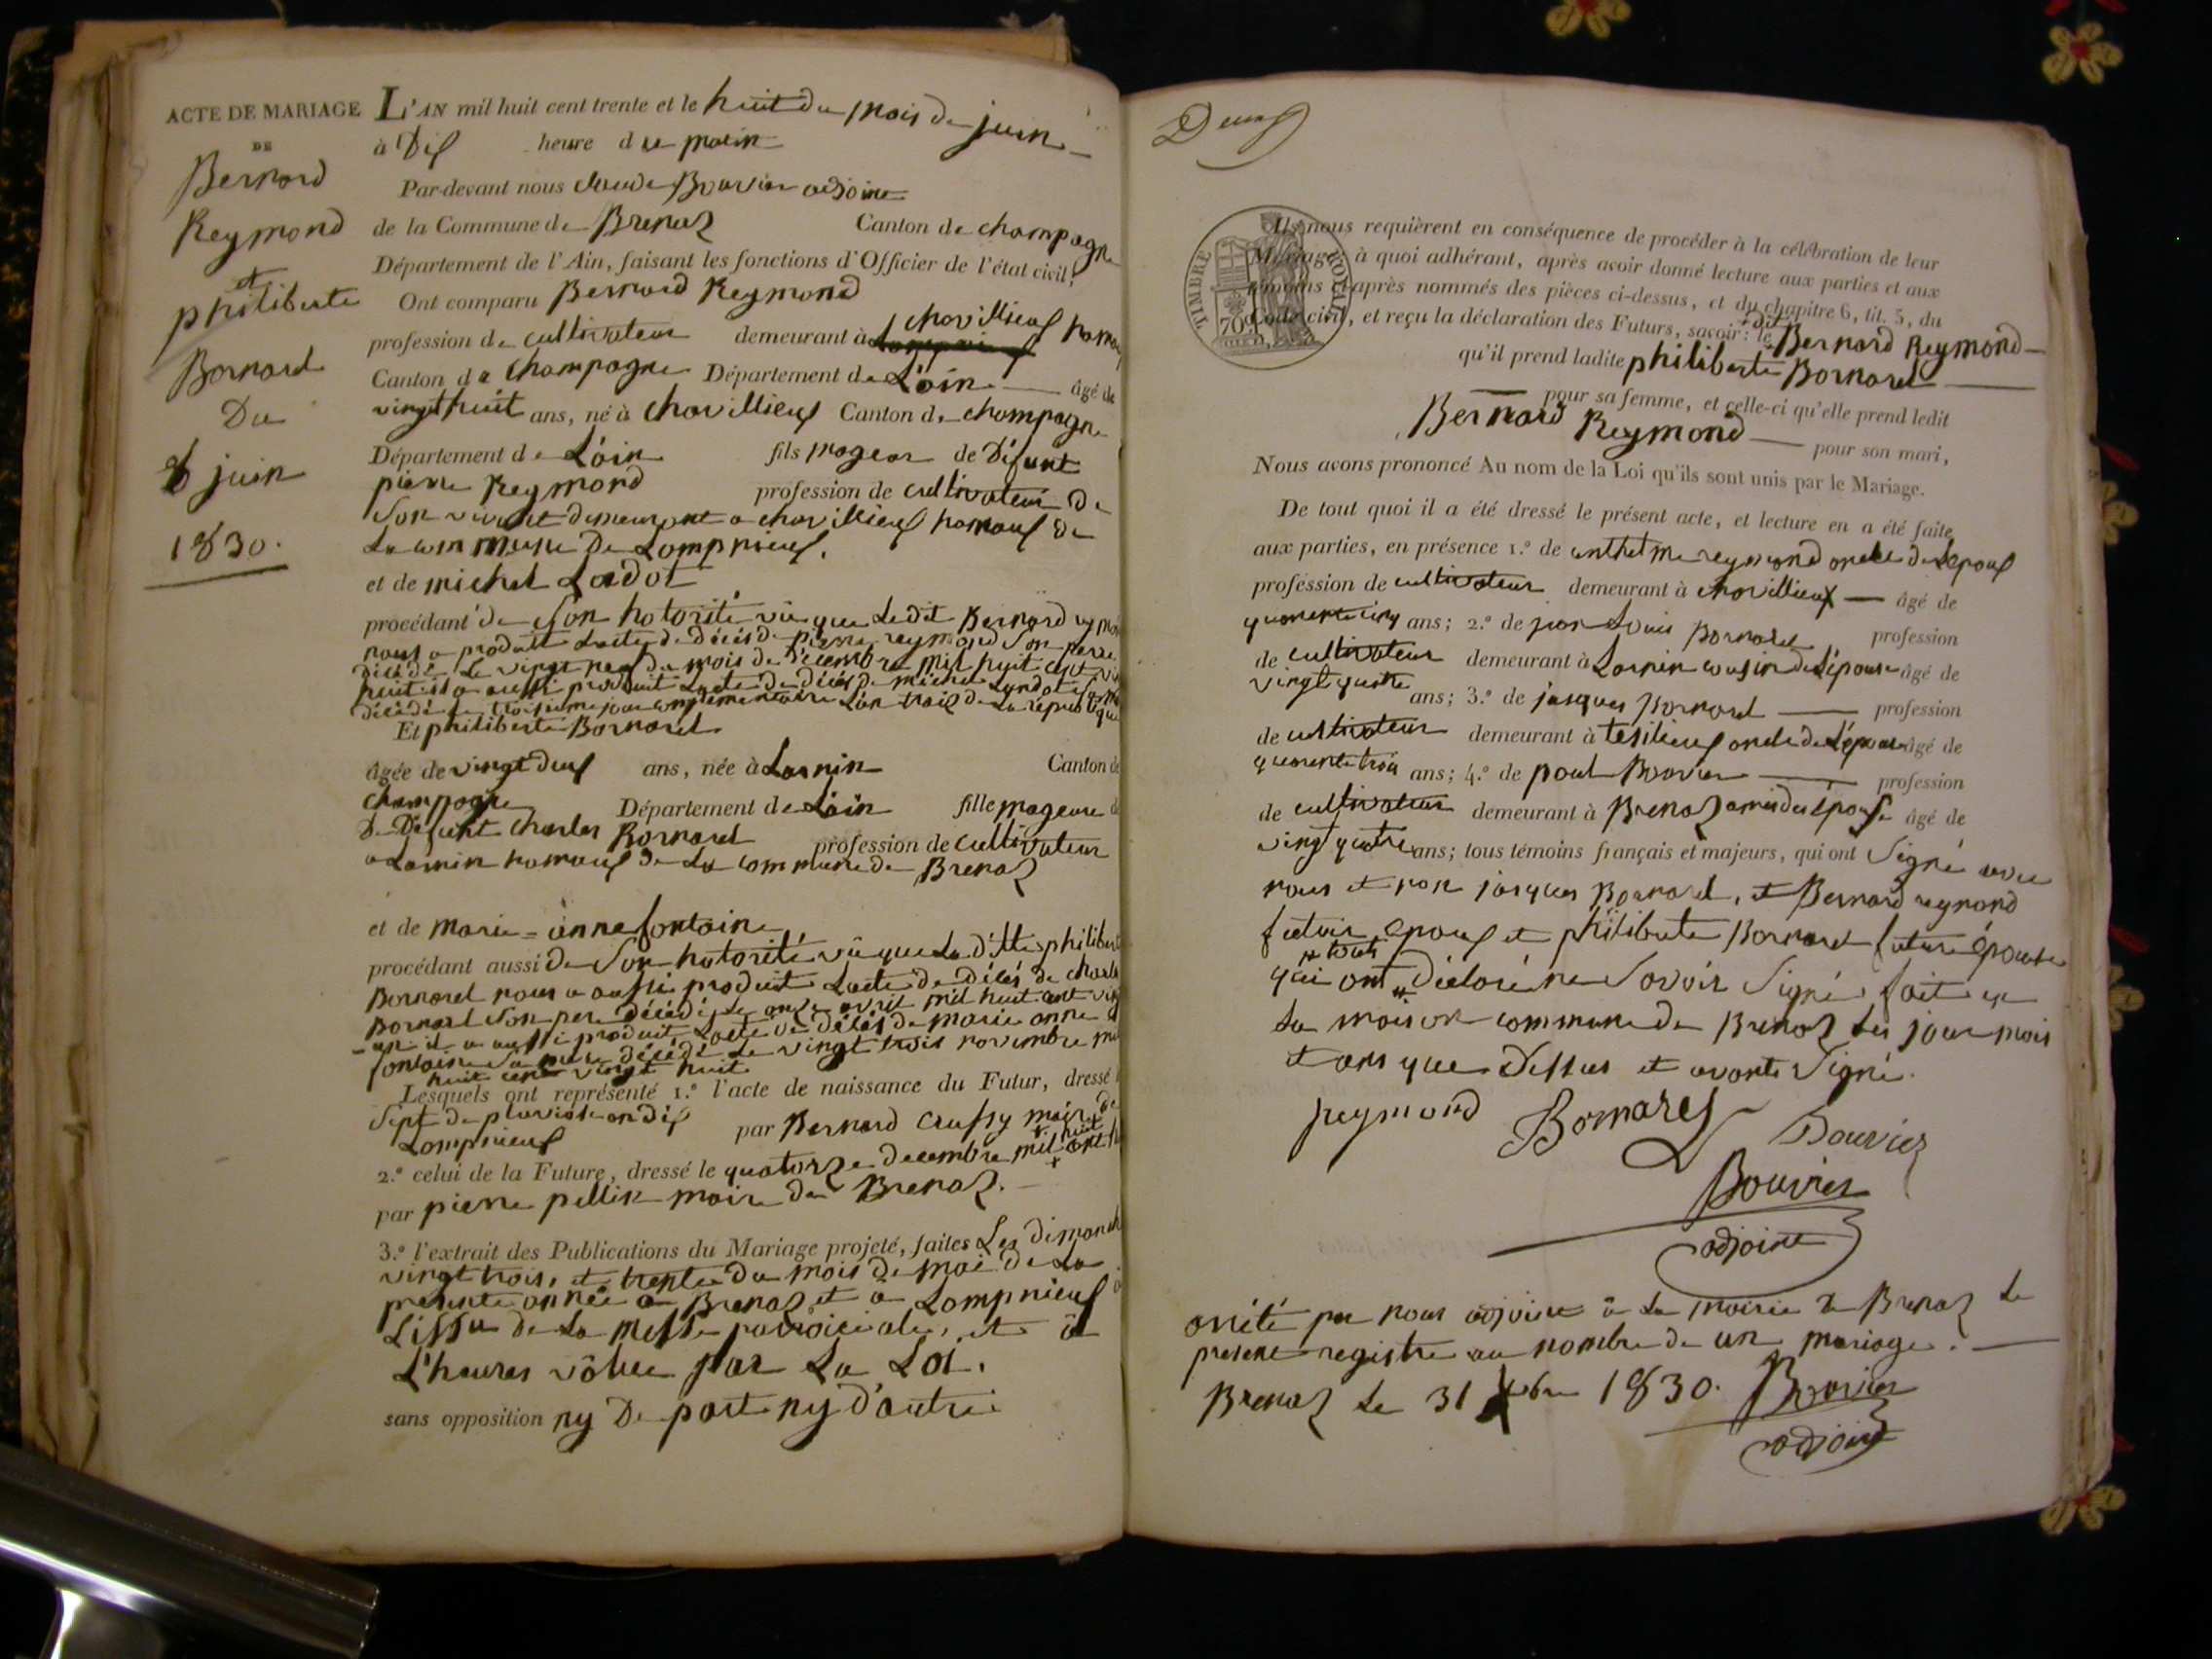 ACTE DE MARIAGE
DE
Bernard
Reymond
et
philiberte
Bornarel
Du
8 juin
1830.
L'AN mil huit cent trente et le huit du mois de juin
à Dix heure du matin
Par-devant nous claude Bouvier adjoint
de la Commune de Brenaz Canton de champagne
Département de l'Ain, faisant les fonctions d'Officier de l'état civil,
Ont comparu Bernard Reymond
profession de cultivateur demeurant à chavillieux hamau
Canton de Champagne Département de L'ain âgé de
vingt huit ans, né à chavillieux Canton de champagne
Département de L'ain fils mageur de Défunt
pierre Reymond profession de cultivateur De
son vivant demeurant a chavillieux hamaux de
La commune De Lompnieux.
et de michel Ladot
procédant de son hotorité vu que Ledit Bernard
nous a produit Lacte de Décés de pierre reymond son pere
décédé Le vingt neuf du mois de Décembre mil huit cent
huit il a aussi produit Lacte de décés de michel
décédé Le troisieme jour complémentaire L'an trois de La république
Et philiberte Bornarel
âgée de vingt deux ans, née à Larnin Canton de
champagne Département de L'ain fille mageure de
De Défunt charles Bornarel profession de cultivateur
a Larnin hamaux de La commune de Brenaz
et de marie = anne fontaine
procédant aussi de son hotorité vû que La ditte philiberte
Bornarel nous a aussi produit Lacte de Décés de charles
Bornarel son pere décédé Le onze avril mil huit cent
un il a aussi produit Lacte de décés de marie anne
fontaine sa mere décédé Le vingt trois novembre mil
huit cent vingt huit
Lesquels ont représenté 1.° l'acte de naissance du Futur, dressé le
sept de pluviose an dix par Bernard Crussy maire de
Lompnieux
2.° celui de la Future, dressé le quatorze decembre mil huit cent
par pierre pellin maire de Brenaz.
3.° l'extrait des Publications du Mariage projeté, faites Les dimanche
vingt trois, et trente du mois de mai de La
presente année a Brenaz et a Lompnieux a
L'issue de La Messe paroiciale, et à
L'heures vôlue par La Loi.
sans opposition ny De part ny d'autre
Deux
TIMBRE ROYAL
70c
Ils nous requièrent en conséquence de procéder à la célébration de leur
Mariage; à quoi adhérant, après avoir donné lecture aux parties et aux
témoins ci-après nommés des pièces ci-dessus, et du chapitre 6, tit. 5, du
Code civil, et reçu la déclaration des Futurs, savoir: le dit Bernard Reymond
qu'il prend ladite philiberte Bornarel
pour sa femme, et celle-ci qu'elle prend ledit
Bernard Reymond pour son mari,
Nous avons prononcé Au nom de la Loi qu'ils sont unis par le Mariage.
De tout quoi il a été dressé le présent acte, et lecture en a été faite
aux parties, en présence 1.° de anthelme reymond oncle de L'epoux
profession de cultivateur demeurant à chavillieux âgé de
quarente cinq ans; 2.° de jean Louis Bornarel profession
de cultivateur demeurant à Larnin cousin de L'épouse âgé de
vingt quatre ans; 3.° de jasques Bornarel profession
de cultivateur demeurant à tesilieux oncle de L'épouse âgé de
quarente trois ans; 4.° de paul Bouvier profession
de cultivateur demeurant à Brenaz amis des épouse âgé de
vingt quatre ans; tous témoins français et majeurs, qui ont signé avec
nous et non jasques Bornarel, et Bernard reymond
futur epoux et philiberte Bornarel future épouse
tous
qui ont Déclaré ne savoir signé fait en
La maison commune de Brenaz Les jour mois
et ans que Dessus et avonts signé.
reymond Bornarel Bouvier
Bouvier
adjoint
arrêté par nous adjoint à La mairie de Brenaz Le
present registre au nombre de un mariage.
Brenaz Le 31 xbre 1830. Bouvier
adjoint